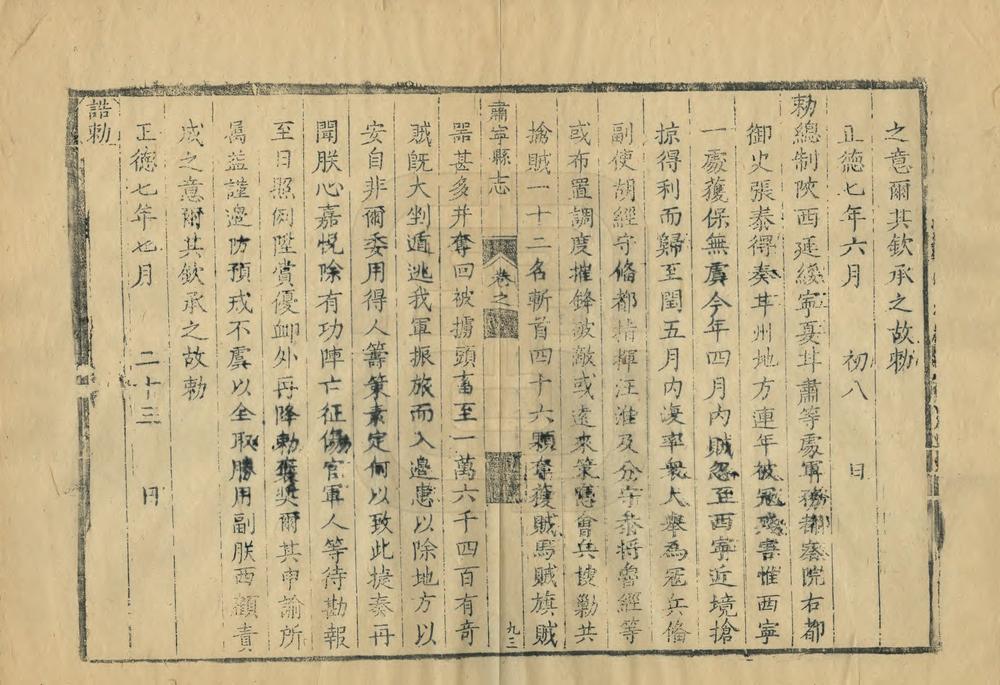 之意爾其欽承之故勅
正德七年六月 初八 日
勅總制陝西延綏寧夏甘肅等處軍務都察院右都
御史張泰得奏甘州地方連年被冦殘害惟西寧
一處獲保無虞今年四月內賊忽至西寧近境搶
掠得利而歸至閏五月內復率衆大舉爲冦兵僃
副使胡經守僃都指揮汪淮及分守叅將魯經等
或布置調度摧鋒破敵或遠來策應會兵搜勦共
擒賊一十二名斬首四十六顆奪獲賊馬賊旗賊
肅寧縣志
卷之
九三
器甚多并奪回被擄頭畜至一萬六千四百有奇
賊旣大剉遁逃我軍振旅而入邉患以除地方以
安自非爾委用得人籌策素定何以致此捷奏再
聞朕心嘉悅除有功陣亡征傷官軍人等待勘報
至日照例陞賞優䘏外再降勅奬爾其申諭所
屬益謹邉防預戒不虞以全取勝用副朕西顧責
成之意爾其欽承之故勅
正德七年七月 二十三 日
誥勅